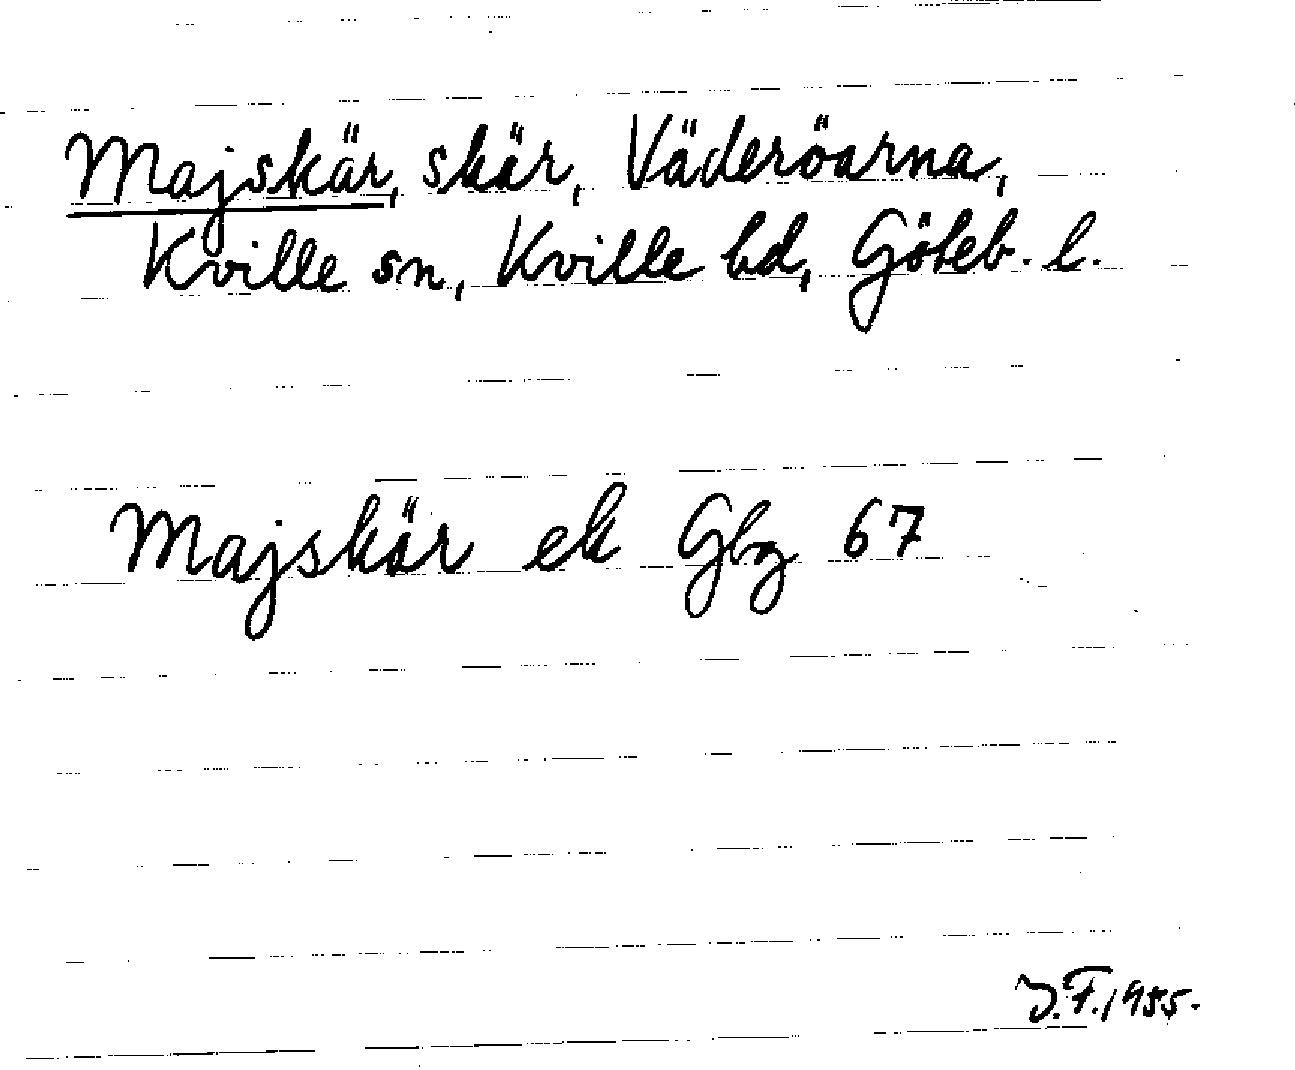 Majskär, skär, Väderöarna,
Kville sn, Kville hd, Göteb. l.
Majskär ek Gbg 67
J.F. 1955.